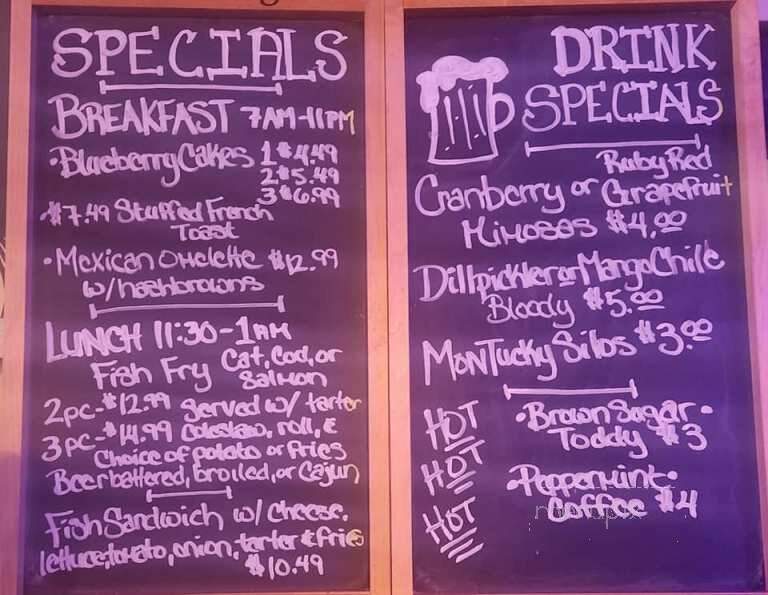 SPECIALS
BREAKFAST 7AM-11PM
•Blueberry Cakes 1 $4.49
2 $5.49
3 $6.99
•$7.49 Stuffed French
Toast
•Mexican Omelette $12.99
w/hashbrowns
LUNCH 11:30-1AM
Fish Fry Cat, Cod, or
Salmon
2pc-$12.99 Served w/ tarter
3pc-$14.99 Coleslaw, roll, &
Choice of potato or fries
Beer battered, broiled, or Cajun
Fish Sandwich w/ cheese,
lettuce, tomato, onion, tarter & fries
$10.49
DRINK
SPECIALS
Ruby Red
Cranberry or Grapefruit
Mimosas $4.00
Dillpickle or Mango Chile
Bloody $5.00
MonTucky Silos $3.00
HOT
HOT
HOT
•Brown Sugar•
Toddy $3
•Peppermint•
Coffee $4